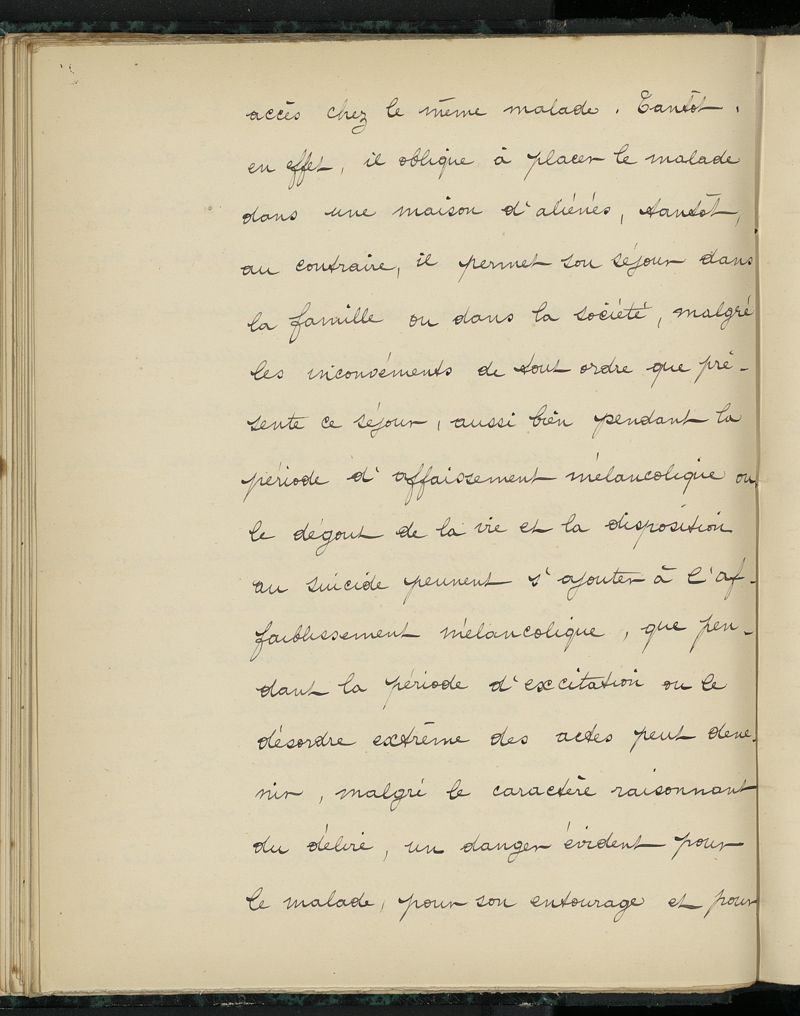 accès chez le même malade. Tantôt,
en effet, il oblige à placer le malade
dans une maison d'aliénés, tantôt,
au contraire, il permet son séjour dans
la famille ou dans la société, malgré
les inconvéments de tout ordre que pré-
sente ce séjour, aussi bien pendant la
période d'affaissement mélancolique ou
le dégout de la vie et la disposition
au suicide peuvent s'ajouter à l'af-
faiblissement mélancolique, que pen-
dant la période d'excitation ou le
désordre extrême des actes peut deve-
nir, malgré le caractère raisonnant
du délire, un danger évident pour
le malade, pour son entourage et pour